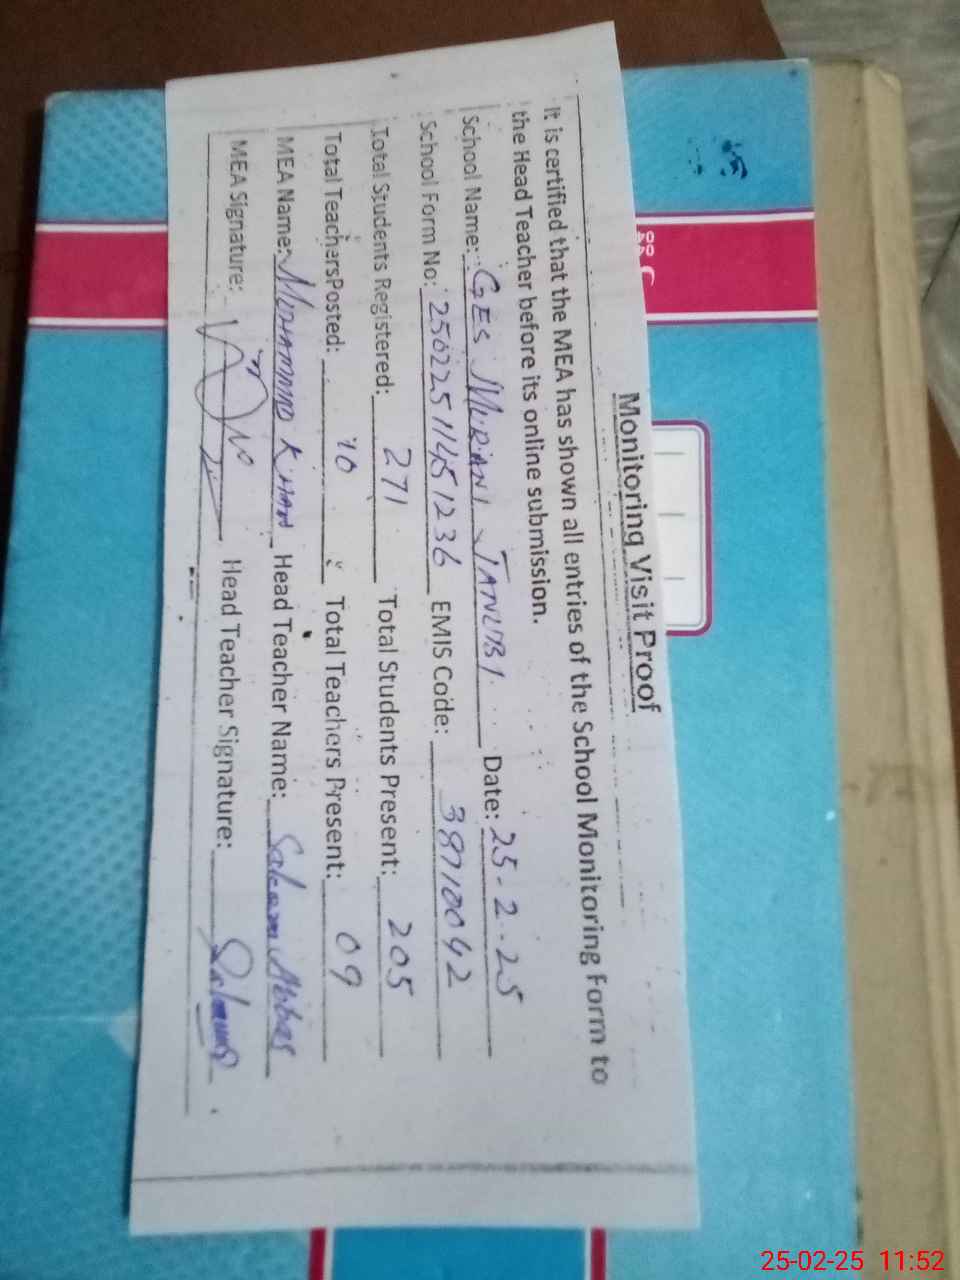 Monitoring Visit Proof
It is certified that the MEA has shown all entries of the School Monitoring Form to
the Head Teacher before its online submission.
School Name: GES MURANI JANUBI Date: 25-2-25
School Form No: 25022511451236 EMIS Code: 38710042
Total Students Registered: 271 Total Students Present: 205
Total Teachers Posted: 10 Total Teachers Present: 09
MEA Name: MUHAMMAD KHAN Head Teacher Name: Saleem Abbas
MEA Signature: Head Teacher Signature: Saleem
25-02-25 11:52